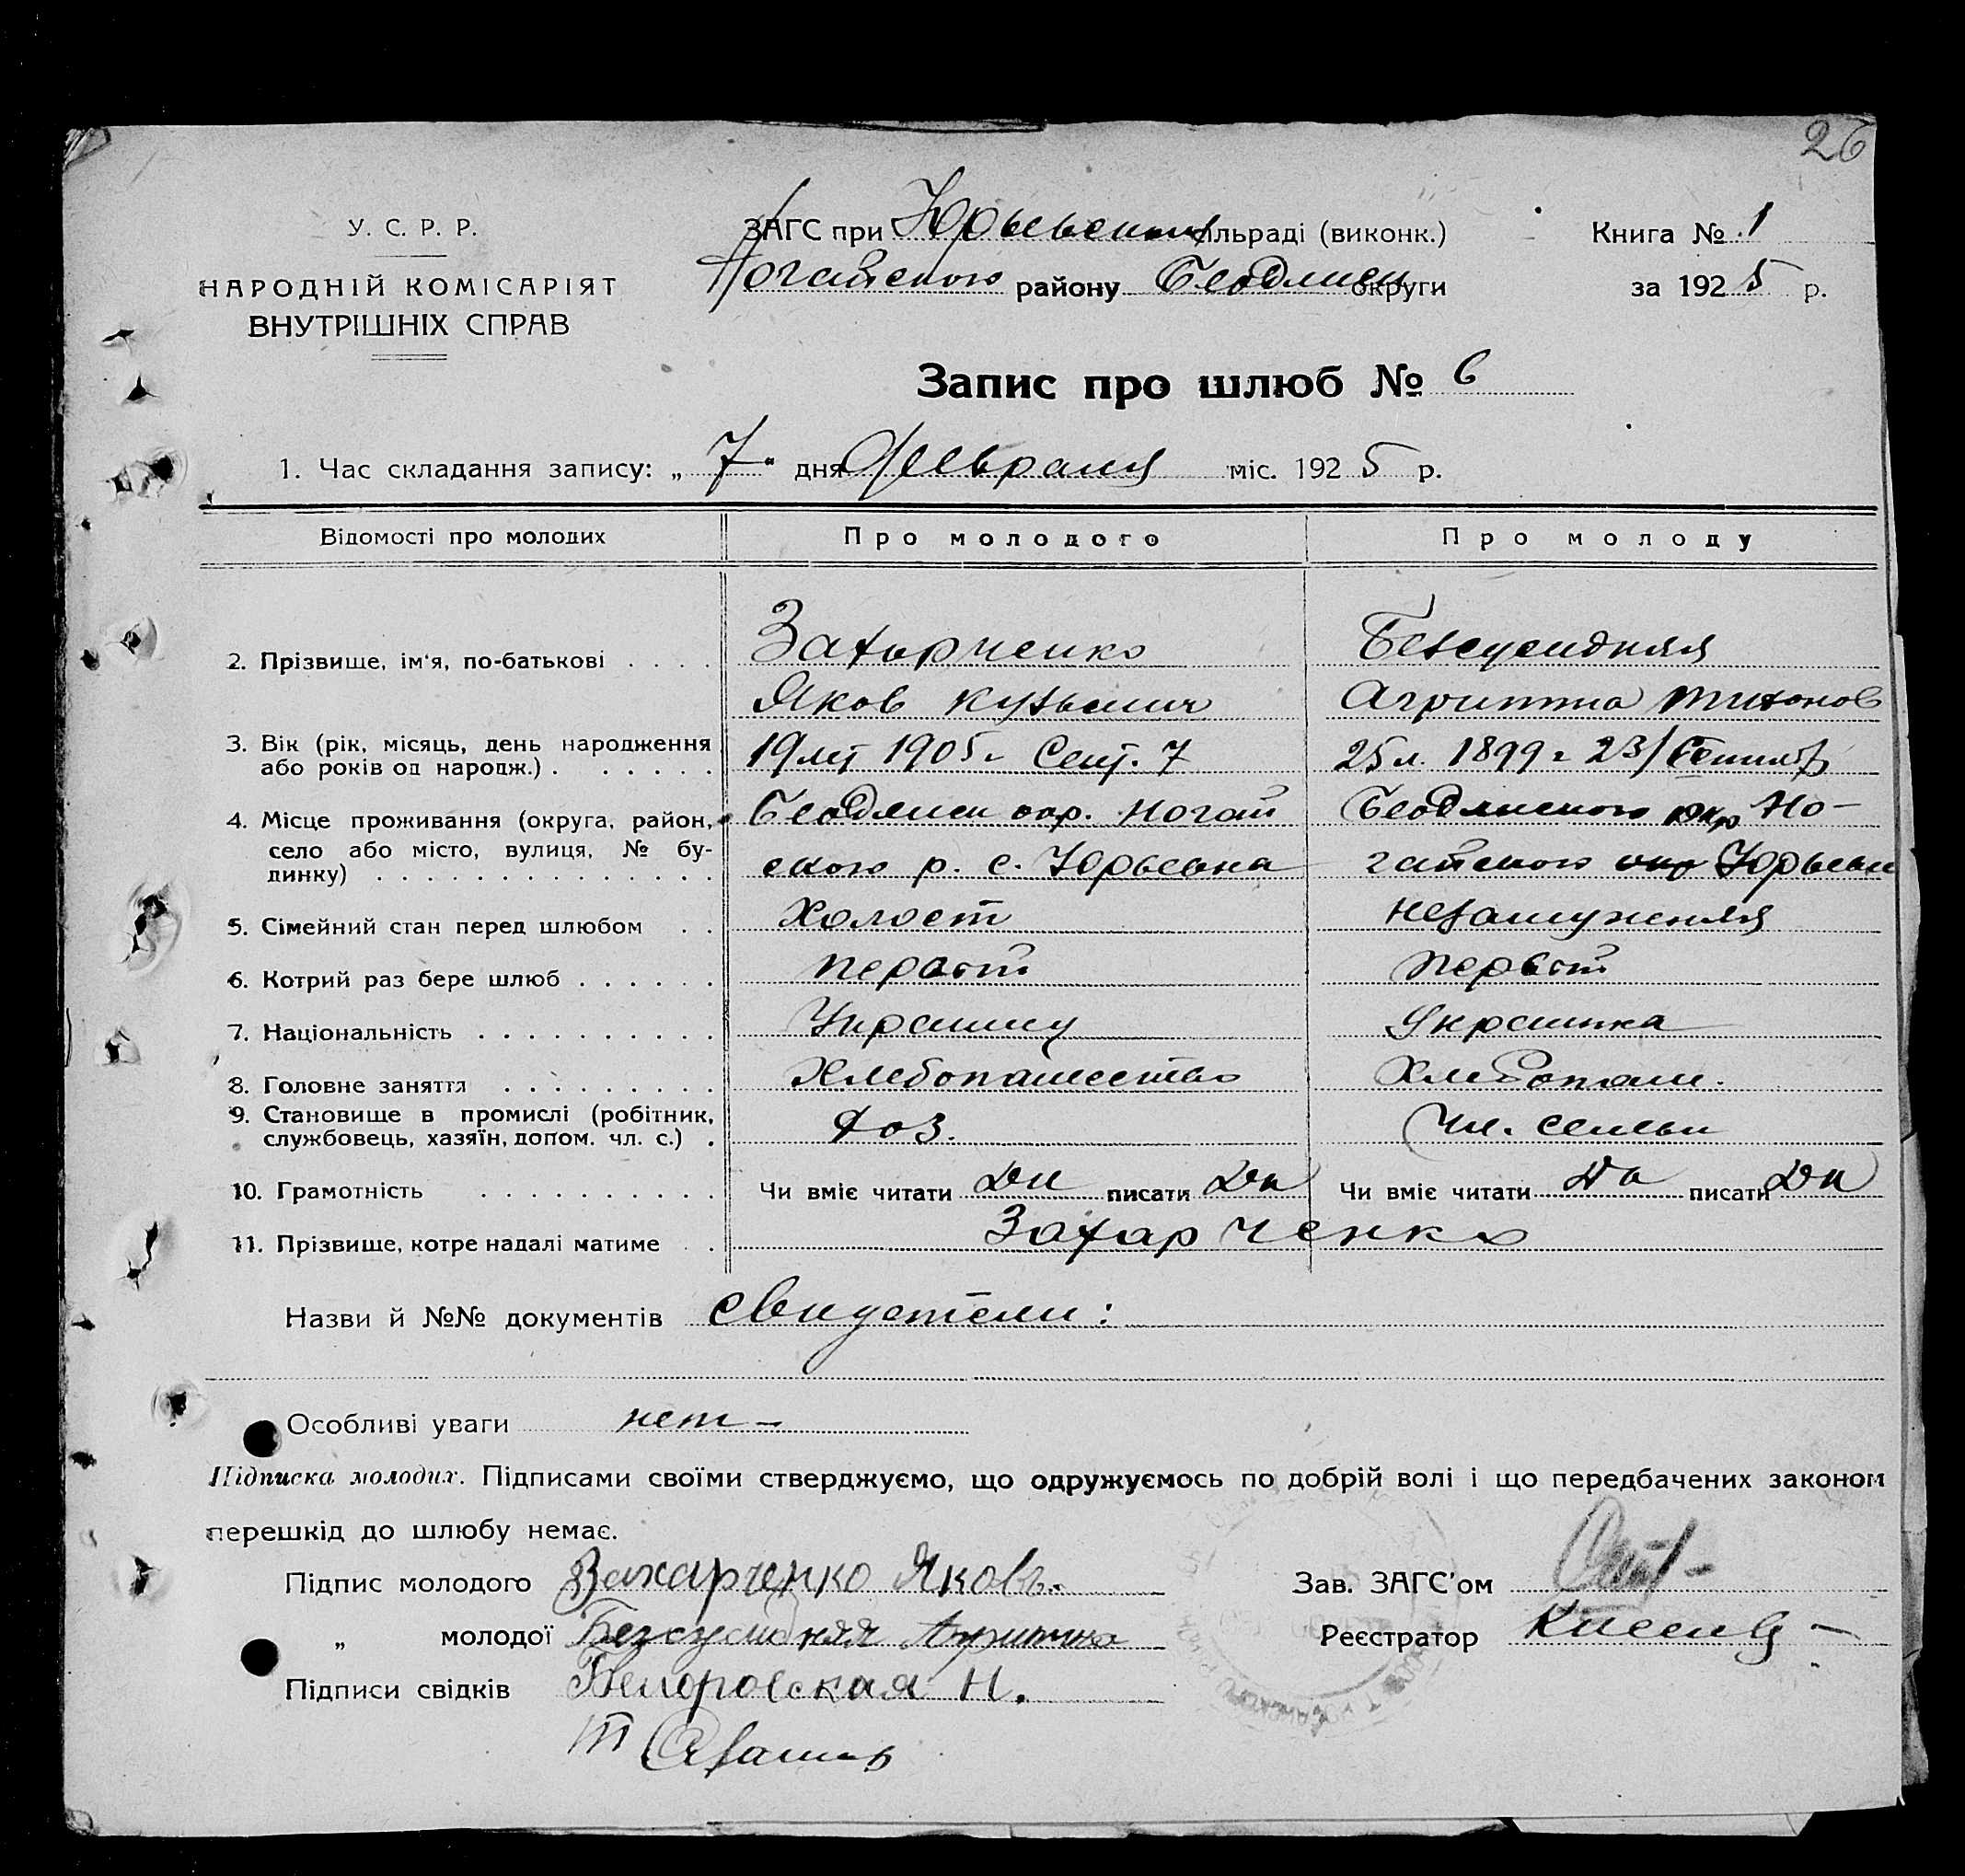 26
У. С. Р. Р.
НАРОДНІЙ КОМІСАРІЯТ
ВНУТРІШНІХ СПРАВ
ЗАГС при Юрьевской сільраді (виконк.)
Ногайского району Бердянск округи
Книга № 1
за 1925 р.
Запис про шлюб № 6
1. Час складання запису: „ 7 " дня Февраля міс. 1925 р.
Відомості про молодих
Про молодого
Про молоду
2. Прізвище, ім'я, по-батькові
Захарченко
Безсусидняя
Яков Кузьмич
Агрипина Тихонов
3. Вік (рік, місяць, день народження або років од народж.)
19 лет 1905 г Сент. 7
25 л. 1899 г 23/
4. Місце проживання (округа, район, село або місто, вулиця, № будинку)
Бердянск окр. Ногай
ского р. с. Юрьевка
Бердянского окр Но-
гайского Юрьевк
5. Сімейний стан перед шлюбом
Холост
незамужняя
6. Котрий раз бере шлюб
первый
первый
7. Національність
Украинец
Украинка
8. Головне заняття
Хлебопашество
Хлебопаш.
9. Становище в промислі (робітник, службовець, хазяїн, допом. чл. с.)
хоз.
Чл. семьи
10. Грамотність
Чи вміє читати Да писати Да
Чи вміє читати Да писати Да
11. Прізвище, котре надалі матиме
Захарченко
Назви й №№ документів свидетели:
Особливі уваги нет —
Підписка молодих. Підписами своїми стверджуємо, що одружуємось по добрій волі і що передбачених законом
перешкід до шлюбу немає.
Підпис молодого Захарченко Яковъ.
Зав. ЗАГС'ом
„ молодої Безсусидняя Агрипина
Реєстратор
Підписи свідків
Н.